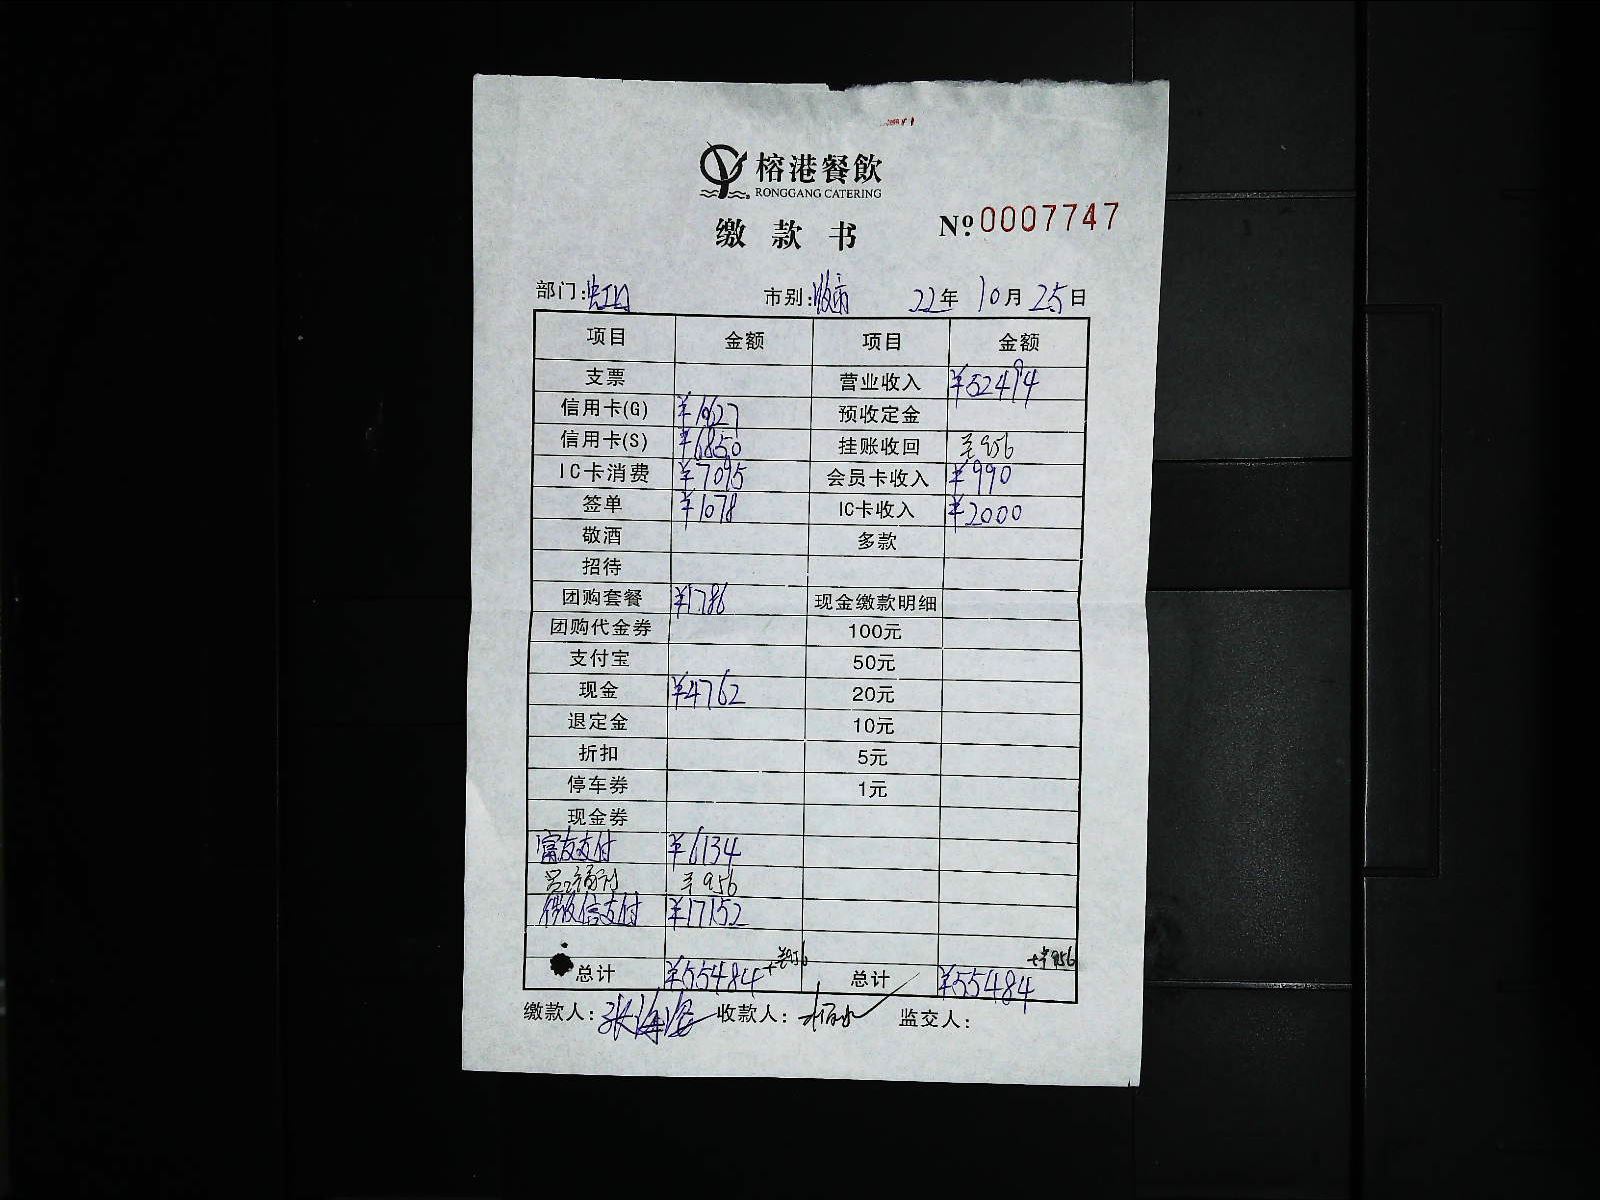 榕港餐飲
RONGGANG CATERING
缴款书
№ 0007747
部门:虹口 市别:收市 22年10月25日
项目 金额 项目 金额
支票 营业收入 ¥52494
信用卡(G) ¥10627 预收定金
信用卡(S) ¥6850 挂账收回 ¥956
IC卡消费 ¥7095 会员卡收入 ¥990
签单 ¥1078 IC卡收入 ¥2000
敬酒 多款
招待
团购套餐 ¥1786 现金缴款明细
团购代金券 100元
支付宝 50元
现金 ¥4762 20元
退定金 10元
折扣 5元
停车券 1元
现金券
富友支付 ¥6134
员工福利 ¥956
微信支付 ¥17152
总计 ¥55484+¥956 总计 ¥55484+¥956
缴款人: 收款人: 监交人: